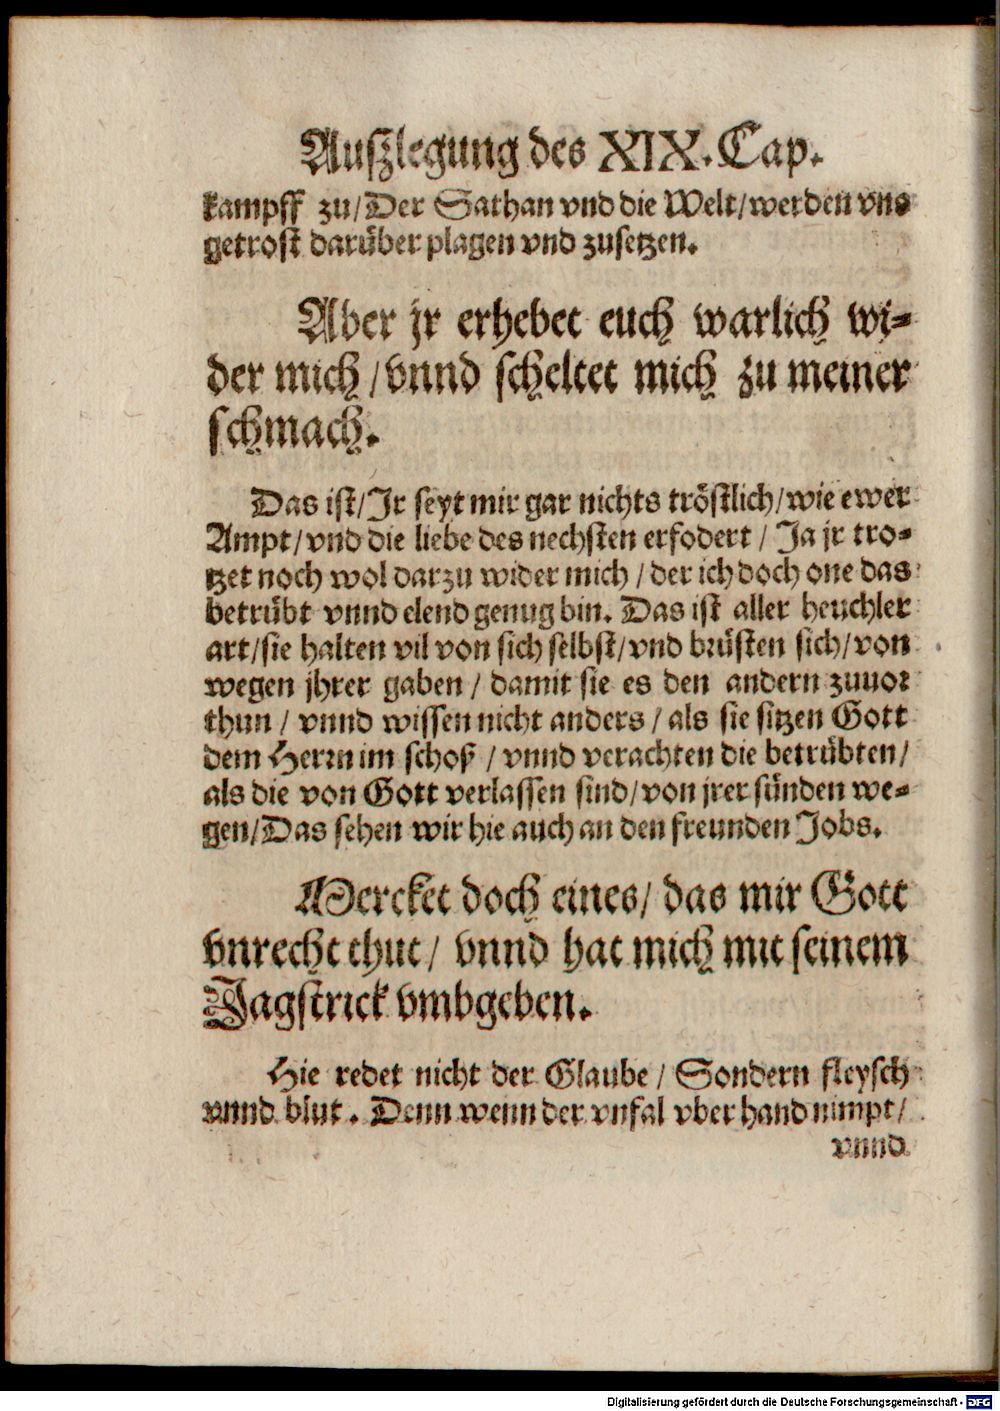 Auſzlegung des XIX. Cap.
kampff zu/ Der Sathan vnd die Welt/ werden vns
getroſt darüber plagen vnd zuſetzen.
Aber jr erhebet euch warlich wi-
der mich/ vnnd ſcheltet mich zu meiner
ſchmach.
Das iſt/ Jr ſeyt mir gar nichts tröſtlich/ wie ewer
Ampt/ vnd die liebe des nechſten erfodert/ Ja jr tro-
tzet noch wol darzu wider mich/ der ich doch one das
betrübt vnnd elend genug bin. Das iſt aller heuchler
art/ ſie halten vil von ſich ſelbſt/ vnd brüſten ſich/ von
wegen jhrer gaben/ damit ſie es den andern zuuor
thun/ vnnd wiſſen nicht anders/ als ſie ſitzen Gott
dem Herrn im ſchoß/ vnnd verachten die betrübten/
als die von Gott verlaſſen ſind/ von jrer ſünden we-
gen/ Das ſehen wir hie auch an den freunden Jobs.
Mercket doch eines/ das mir Gott
vnrecht thut/ vnnd hat mich mit ſeinem
Jagſtrick vmbgeben.
Hie redet nicht der Glaube/ Sondern fleyſch
vnnd blut. Denn wenn der vnfal vber hand nimpt/
vnnd
Digitalisierung gefördert durch die Deutsche Forschungsgemeinschaft - DFG